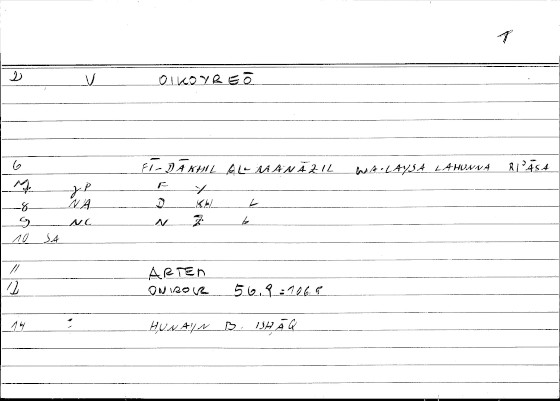 1
2 V OIKOYREŌ
6 FĪ-DĀKHIL AL-MANĀZIL WA-LAYSA LAHUNNA RIʾĀSA
7 JP F Y
8 NA D KH L
9 NC N Z L
10 SA
11 ARTEM
12 ONIROCR 56.9 = 106.5
14 : ḤUNAYN B. ISḤĀQ